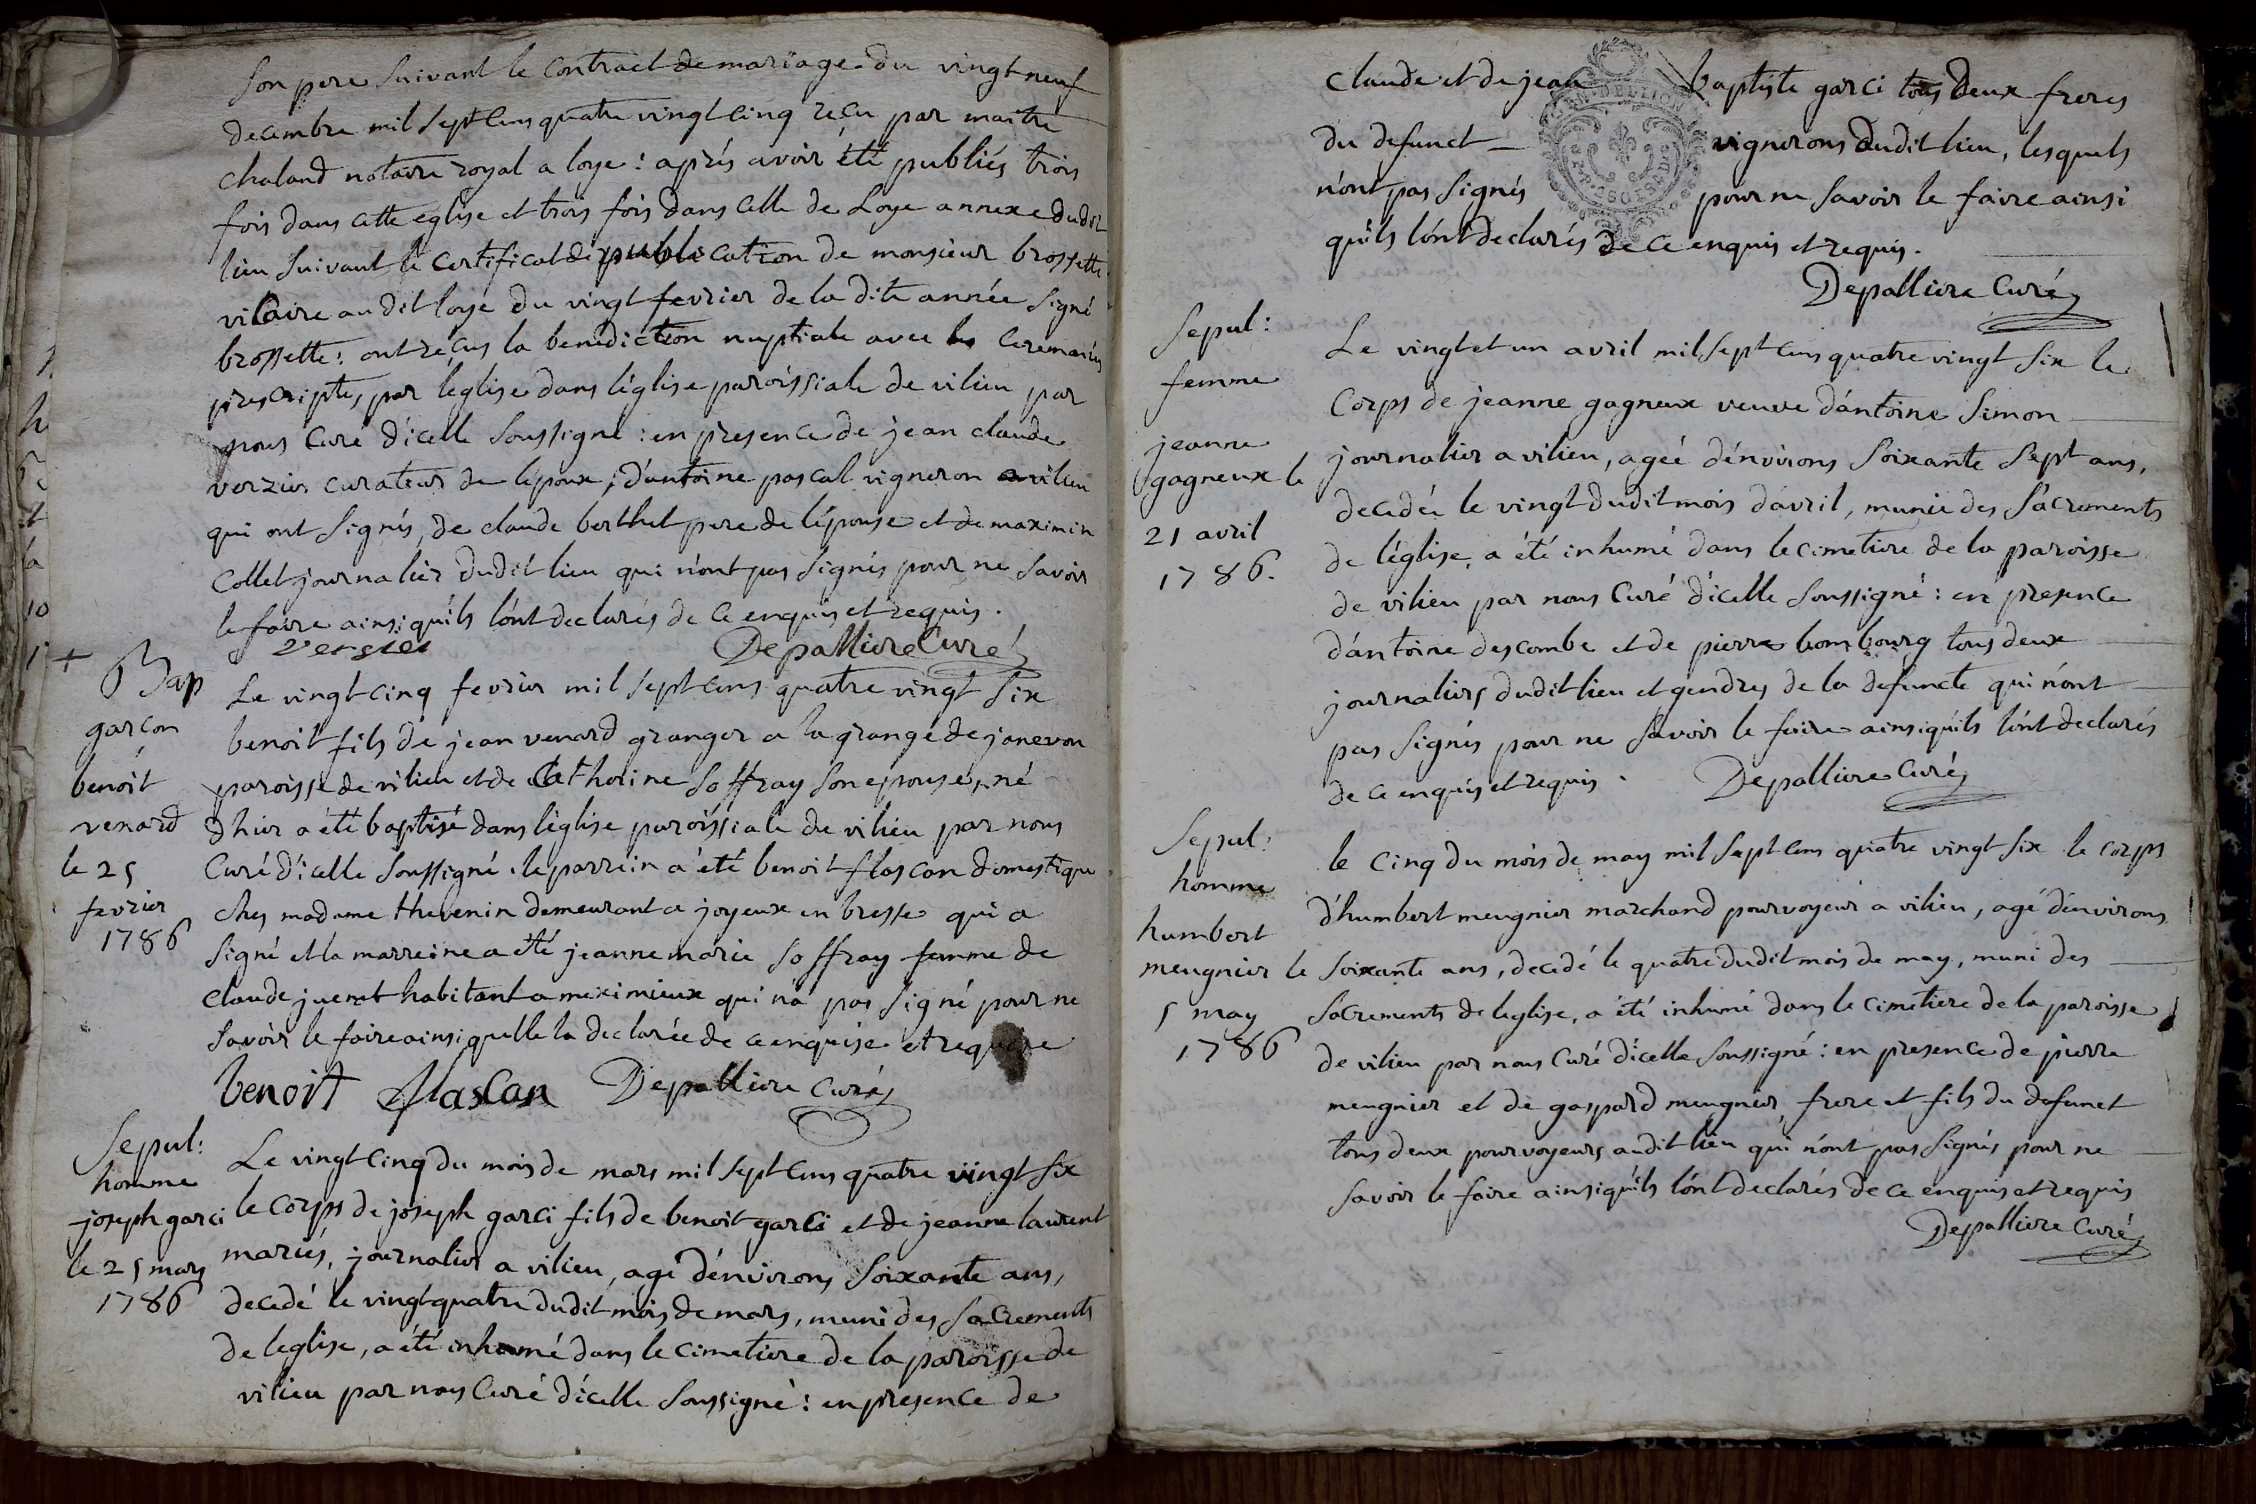 son pere suivant le contract de mariage du vingt neuf
decembre mil sept cens quatre vingt cinq reçu par maitre
chaland notaire royal a loye : aprés avoir été publiés trois
fois dans cette eglise et trois fois dans celle de Loye annexe dudit
lieu suivant le certificat de publication de monsieur brossette
vicaire au dit loye du vingt fevrier de la dite année signé
brossette : ont reçus la benediction nuptiale avec les ceremonies
prescriptes par l'eglise dans l'église paroissiale de vilieu par
nous Curé d'icelle soussigné : en presence de jean claude
verzier curateur de l'époux, d'antoine pascal vigneron a vilieu
qui ont signés, de claude berthet pere de l'épouse et de maximin
Collet journalier dudit lieu qui n'ont pas signés pour ne savoir
le faire ainsi qu'ils l'ont declarés de ce enquis et requis.
Versier Depalliere Curé
Bap
garcon
benoit
venard
le 25
fevrier
1786
Le vingt cinq fevrier mil sept cens quatre vingt six
benoit fils de jean venard granger a la grange de janevon
paroisse de vilieu et de Catherine soffray son epouse, né
d'hier a été baptisé dans l'église paroissiale de vilieu par nous
Curé d'icelle soussigné. le parrein a été benoit flascan domestique
ches madame thevenin demeurant a joyeux en bresse qui a
signé et la marreine a été jeanne marie soffray femme de
claude juenet habitant a meximieux qui n'a pas signé pour ne
savoir le faire ainsi quelle la declarée de ce enquise et requise
benoit flascan Depalliere Curé
Sepul:
homme
joseph garci
le 25 mars
1786
Le vingt cinq du mois de mars mil sept cens quatre vingt six
le corps de joseph garci fils de benoit garci et de jeanne laurent
mariés, journalier a vilieu, agé d'environs soixante ans,
decedé le vingt quatre dudit mois de mars, muni des sacrements
de l'eglise, a été inhumé dans le cimetiere de la paroisse de
vilieu par nous Curé d'icelle soussigné : en presence de
claude et de jean baptiste garci tous deux freres
du defunct vignerons dudit lieu, lesquels
n'ont pas signés pour ne savoir le faire ainsi
qu'ils l'ont declarés de ce enquis et requis.
Depalliere Curé
Sepul:
femme
jeanne
gagneux le
21 avril
1786.
Le vingt et un avril mil sept cens quatre vingt six le
Corps de jeanne gagneux veuve d'antoine simon
journalier a vilieu, ageé d'environs soixante sept ans,
decedée le vingt dudit mois d'avril, munie des sacrements
de l'église, a été inhumé dans le cimetiere de la paroisse
de vilieu par nous Curé d'icelle soussigné : en presence
d'antoine descombe et de pierre bombourg tous deux
journaliers dudit lieu et gendres de la defuncte qui n'ont
pas signés pour ne savoir le faire ainsi qu'ils l'ont declarés
de ce enquis et requis. Depalliere Curé
Sepul:
homme
humbert
meugnier le
5 may
1786
le cinq du mois de may mil sept cens quatre vingt six le corps
d'humbert meugnier marchand pourvoyeur a vilieu, agé d'environs
soixante ans, decedé le quatre dudit mois de may, muni des
sacrements de l'eglise, a été inhumé dans le cimetiere de la paroisse
de vilieu par nous Curé d'icelle soussigné : en presence de pierre
meugnier et de gaspard meugnier, frere et fils du defunct
tous deux pourvoyeurs audit lieu qui n'ont pas signés pour ne
savoir le faire ainsi qu'ils l'ont declarés de ce enquis et requis
Depalliere Curé